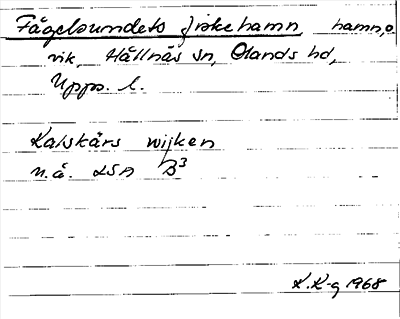 Fågelsundets fiskehamn, hamn, o
vik, Hållnäs sn, Olands hd,
Upps. l.
Kalskärs wijken
n.å. LSA B3
K.K-g 1968